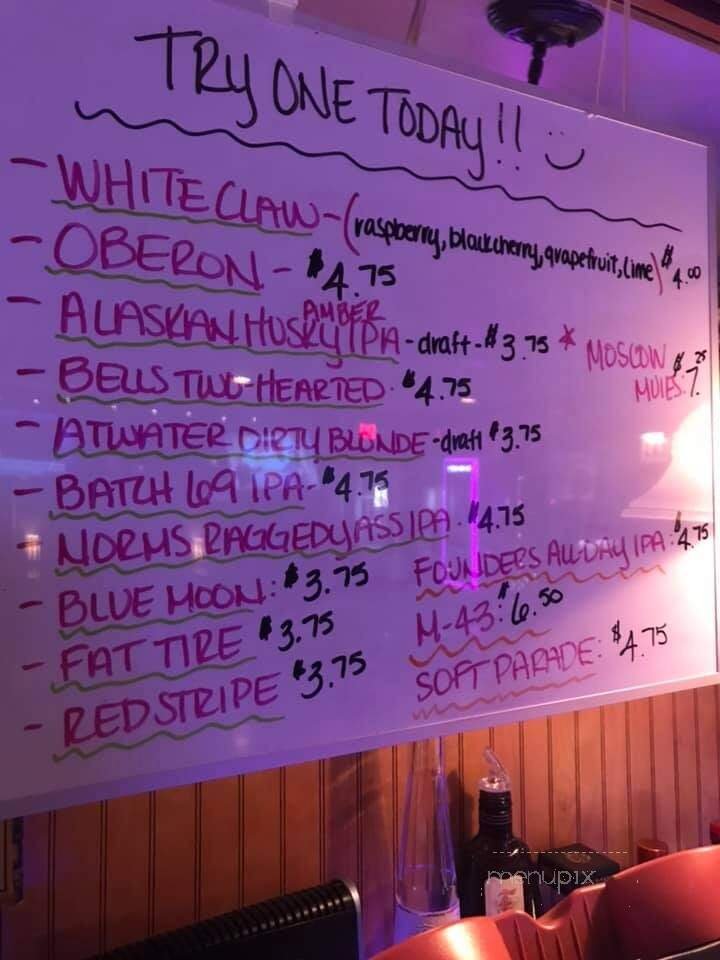 TRY ONE TODAY!! :)
- WHITE CLAW - (raspberry, black cherry, grapefruit, lime) $4.00
- OBERON - $4.75
- ALASKAN HUSKY IPA - draft - $3.75 *
AMBER
MOSCOW MULES: $7.25
- BELLS TWO-HEARTED - $4.75
- ATWATER DIRTY BLONDE - draft $3.75
- BATCH 69 IPA - $4.75
- NORMS RAGGEDY ASS IPA - $4.75
- BLUE MOON: $3.75
- FAT TIRE $3.75
- RED STRIPE $3.75
FOUNDERS ALL DAY IPA: $4.75
M-43: $6.50
SOFT PARADE: $4.75
menupix